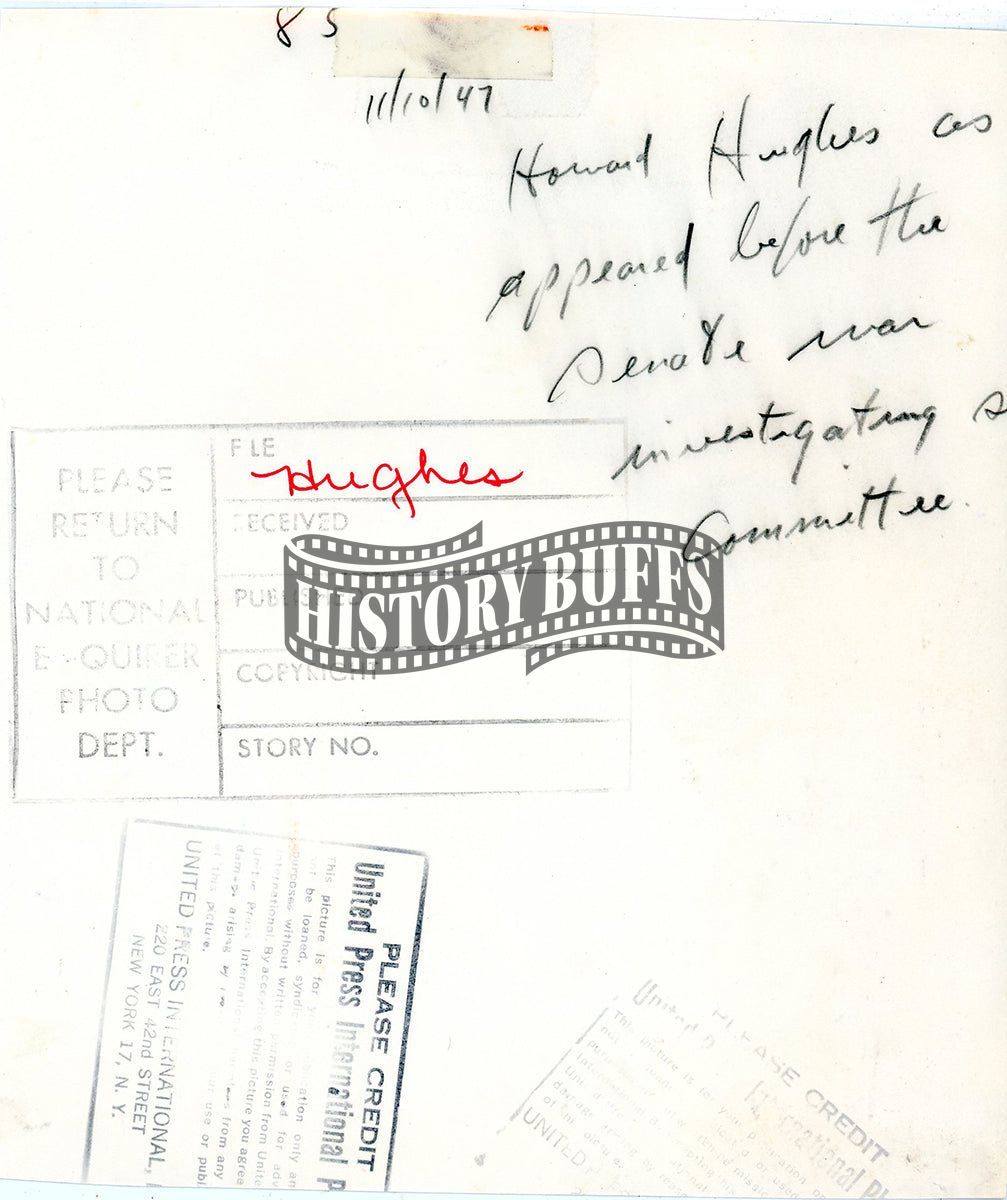 85
11/10/47
Howard Hughes as
appeared before the
Senate war
investigating s
Committee.
PLEASE
RETURN
TO
NATIONAL
E QUIRER
PHOTO
DEPT.
FILE
Hughes
RECEIVED
PUBLISHED
COPYRIGHT
STORY NO.
HISTORY BUFFS
PLEASE CREDIT
United Press International P
This picture is for y ation only an
not be loaned, syndic or used for adv
purposes without written permission from Unite
International. By accepting this picture you agree
United Press International from any
damage arising by use or publ
of this picture.
UNITED PRESS INTERNATIONAL, I
220 EAST 42nd STREET
NEW YORK 17, N. Y.
PLEASE CREDIT
United P national P
This picture is for your p
UNITED